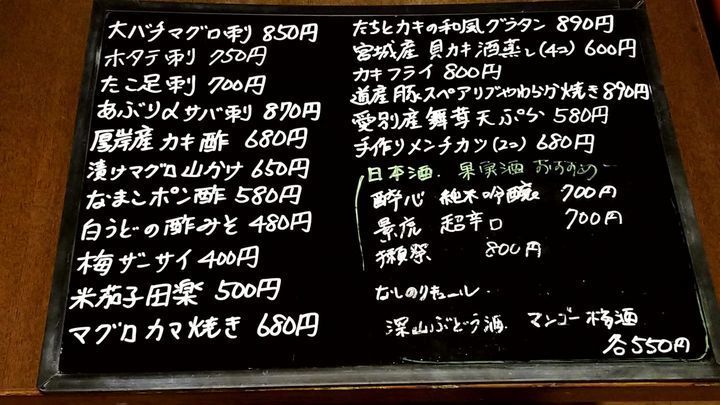 大バチマグロ刺 850円
ホタテ刺 750円
たこ足刺 700円
あぶり〆サバ刺 870円
厚岸産 カキ酢 680円
漬けマグロ山かけ 650円
なまこポン酢 580円
白うどの酢みそ 480円
梅ザーサイ 400円
米茄子田楽 500円
マグロカマ焼き 680円
たちとカキの和風グラタン 890円
宮城産 貝カキ酒蒸し(4コ) 600円
カキフライ 800円
道産豚スペアリブやわらか焼き 890円
愛別産 舞茸天ぷら 580円
手作りメンチカツ(2コ) 680円
日本酒.果実酒 おすすめ
酔心 純米吟醸 700円
景虎 超辛口 700円
獺祭 800円
なしのリキュール
深山ぶどう酒. マンゴー梅酒
各550円